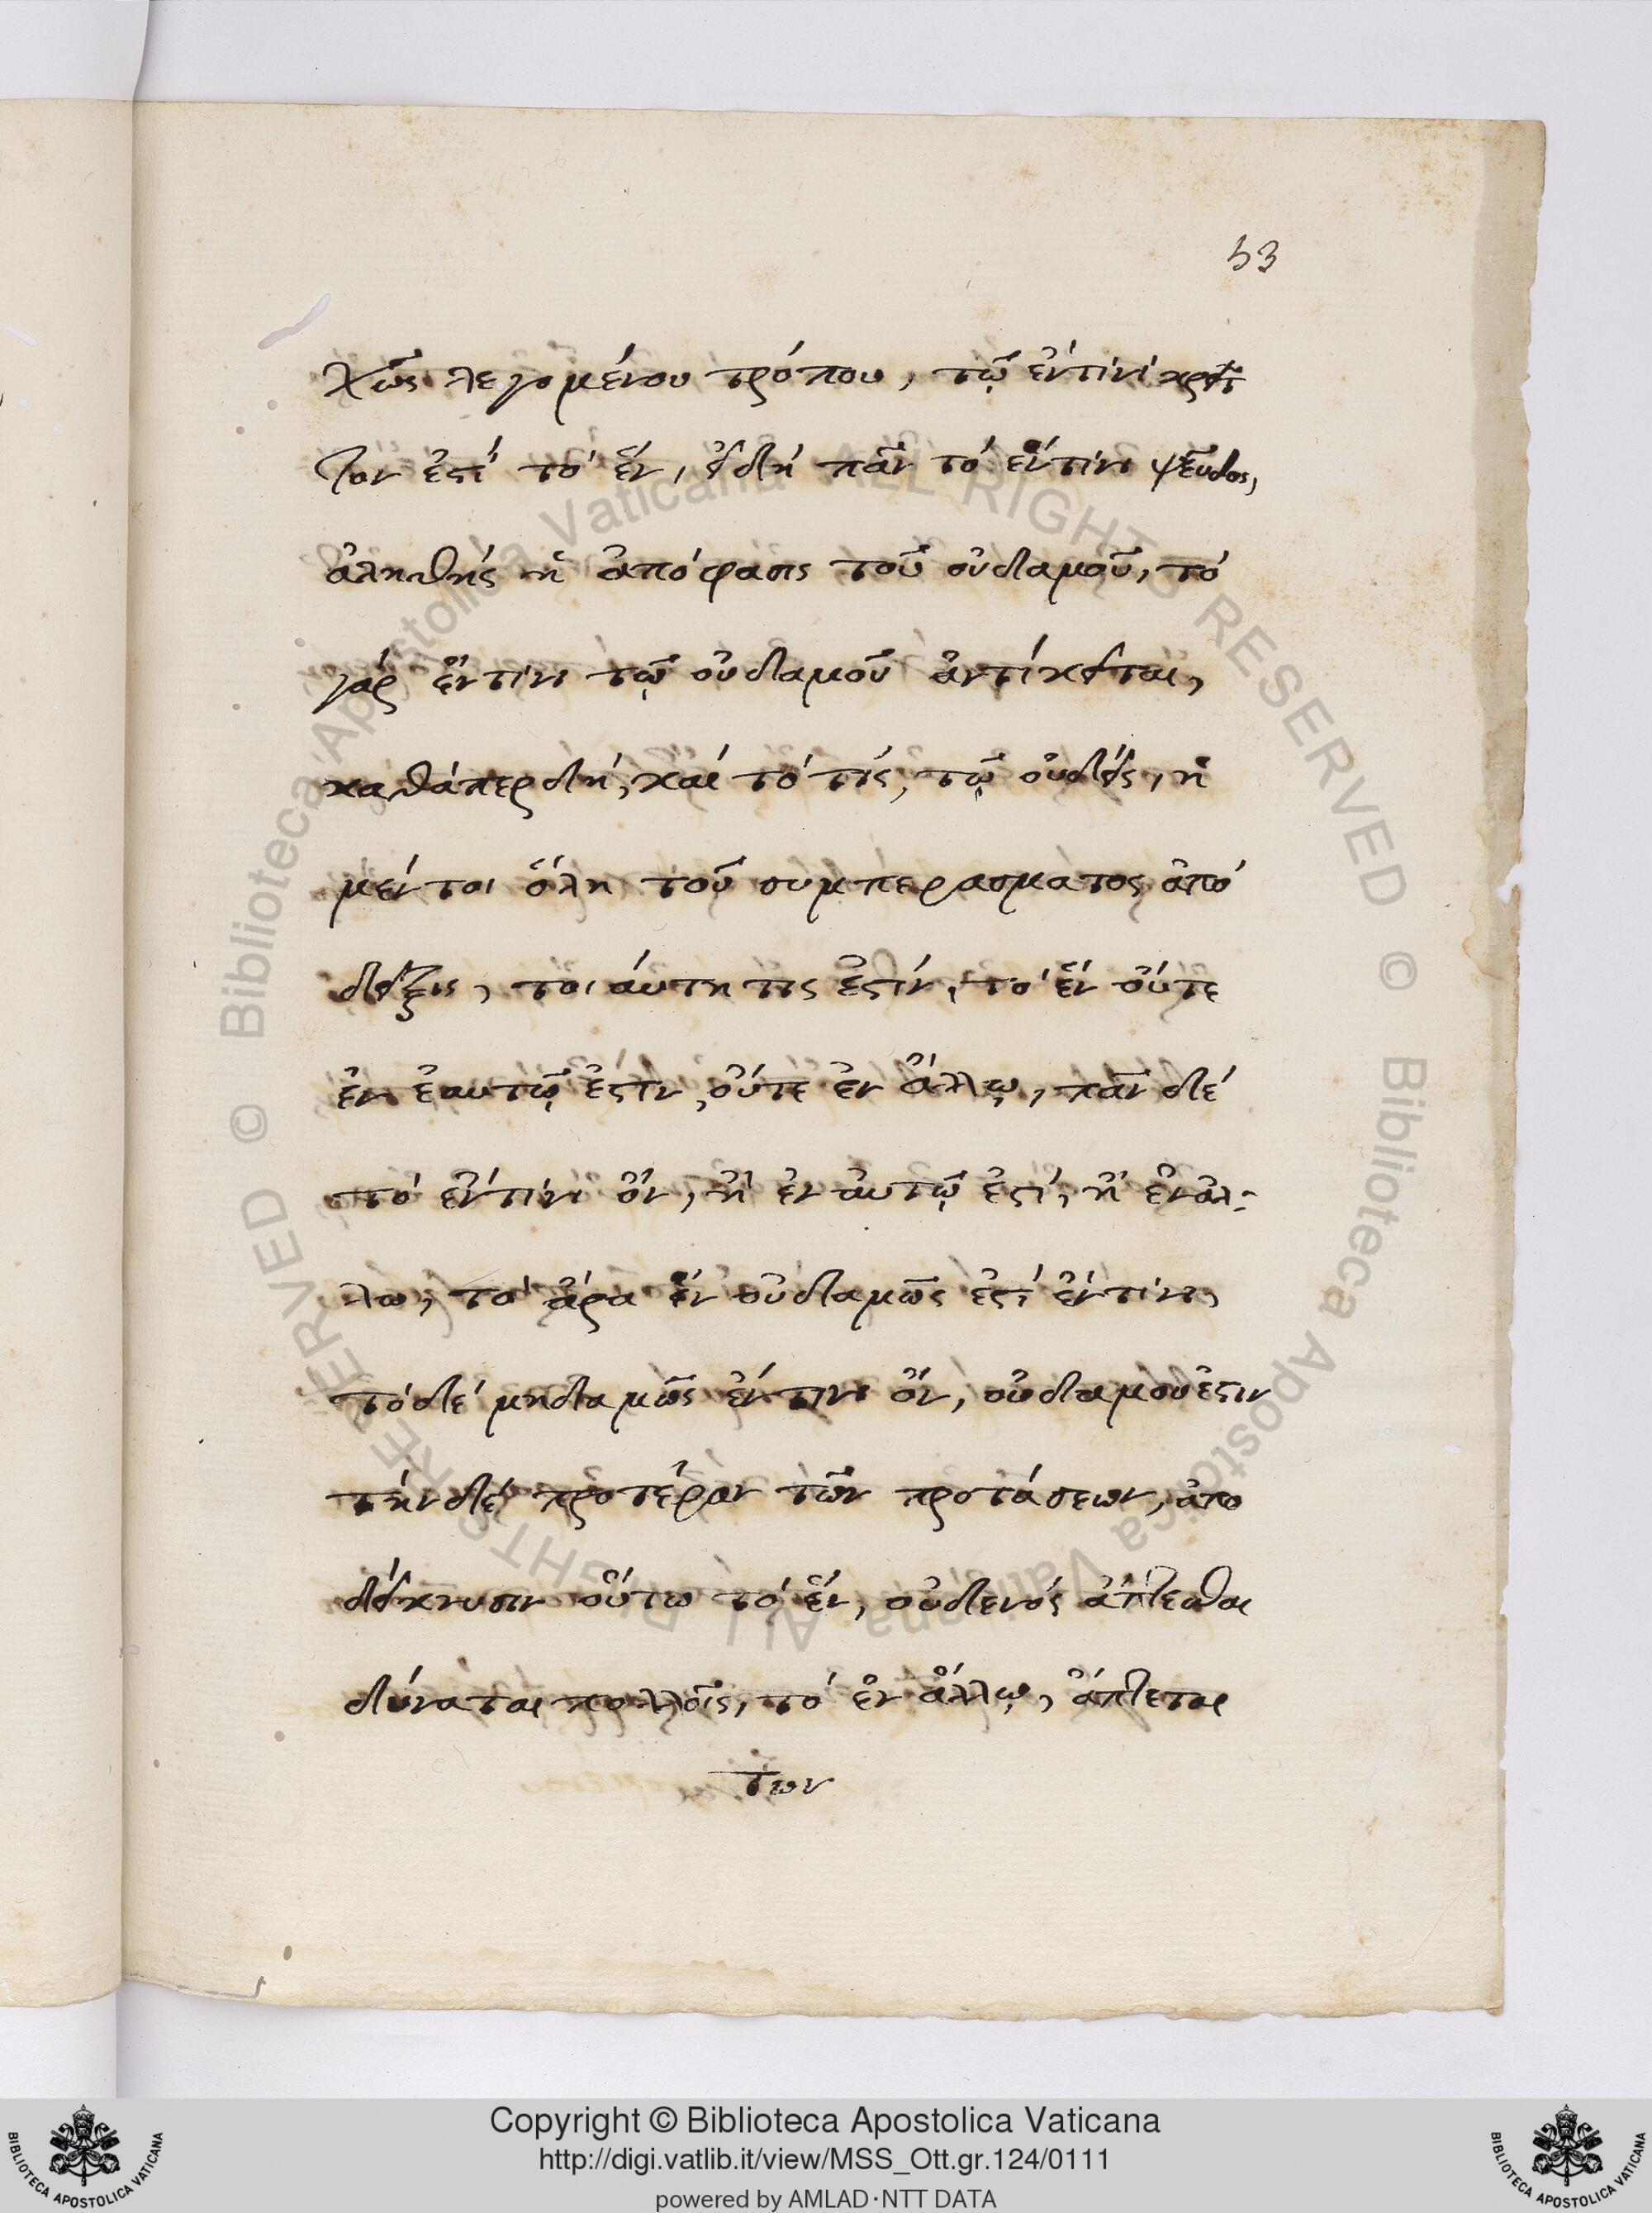 53
χῶς λεγομένου τρόπου, τῷ ἐν τινὶ κρεῖτ
τον ἐστὶ τὸ ἓν, εἰ δὴ πᾶν τὸ ἔν τινι ψεῦδος,
ἀληθὴς ἡ ἀπόφασις τοῦ οὐδαμοῦ, τὸ
γὰρ ἔν τινι τῷ οὐδαμοῦ ἀντίκειται,
καθάπερ δὴ, καὶ τὸ τὶς, τῷ οὐδεὶς, ἡ
μέντοι ὅλη τοῦ συμπεράσματος ἀπό
δειξις, τοιαύτη τις ἐστίν, τὸ ἓν οὔτε
ἐν ἑαυτῷ ἐστιν, οὔτε ἐν ἄλλῳ, πᾶν δὲ
τὸ ἔν τινι ὂν, ἢ ἐν αὑτῷ ἐστὶ, ἢ ἐν ἀλ-
λω, τὸ ἄρα ἓν οὐδαμῶς ἐστὶ ἔν τινι,
τὸ δὲ μηδαμῶς ἔν τινι ὂν, οὐδαμου ἐστιν
τὴν δὲ προτέραν τῶν προτάσεων, ἀπο
δείκνυσιν οὕτω τὸ ἓν, οὐδενὸς ἅπτεσθαι
δύναται πολλοῖς, τὸ ἐν ἄλλῳ, ἅπτεται
των
Copyright © Biblioteca Apostolica Vaticana
http://digi.vatlib.it/view/MSS_Ott.gr.124/0111
powered by AMLAD·NTT DATA
BIBLIOTECA APOSTOLICA VATICANA
BIBLIOTECA APOSTOLICA VATICANA
© Biblioteca Apostolica Vaticana ALL RIGHTS RESERVED
© Biblioteca Apostolica Vaticana ALL RIGHTS RESERVED